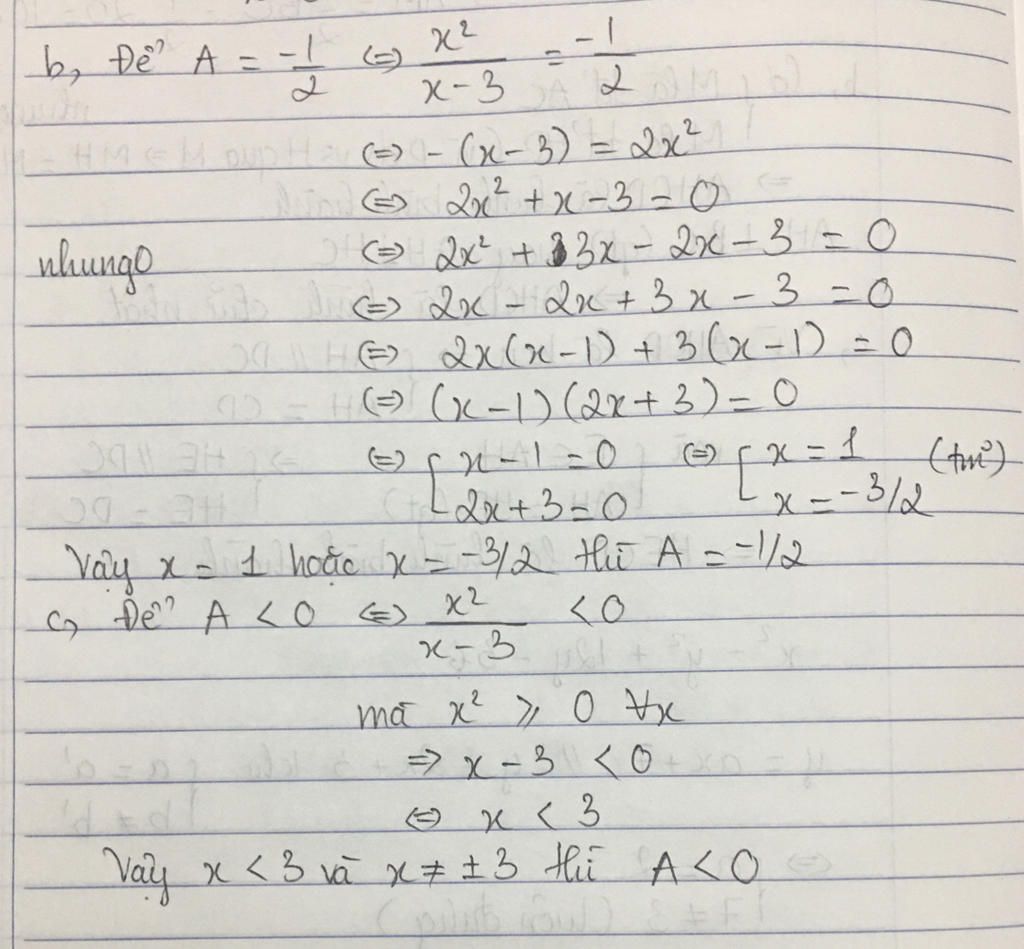 b, Để A = -1/2 ⇔ x²/(x-3) = -1/2
⇔ -(x-3) = 2x²
⇔ 2x² + x - 3 = 0
nhung0 ⇔ 2x² + 3x - 2x - 3 = 0
⇔ 2x - 2x + 3x - 3 = 0
⇔ 2x(x-1) + 3(x-1) = 0
⇔ (x-1)(2x+3) = 0
⇔ [ x-1 = 0 ⇔ [ x = 1 (tm)
2x+3 = 0 x = -3/2
Vậy x = 1 hoặc x = -3/2 thì A = -1/2
c, Để A < 0 ⇔ x²/(x-3) < 0
mà x² ⩾ 0 ∀x
⇒ x - 3 < 0
⇔ x < 3
Vậy x < 3 và x ≠ ±3 thì A < 0